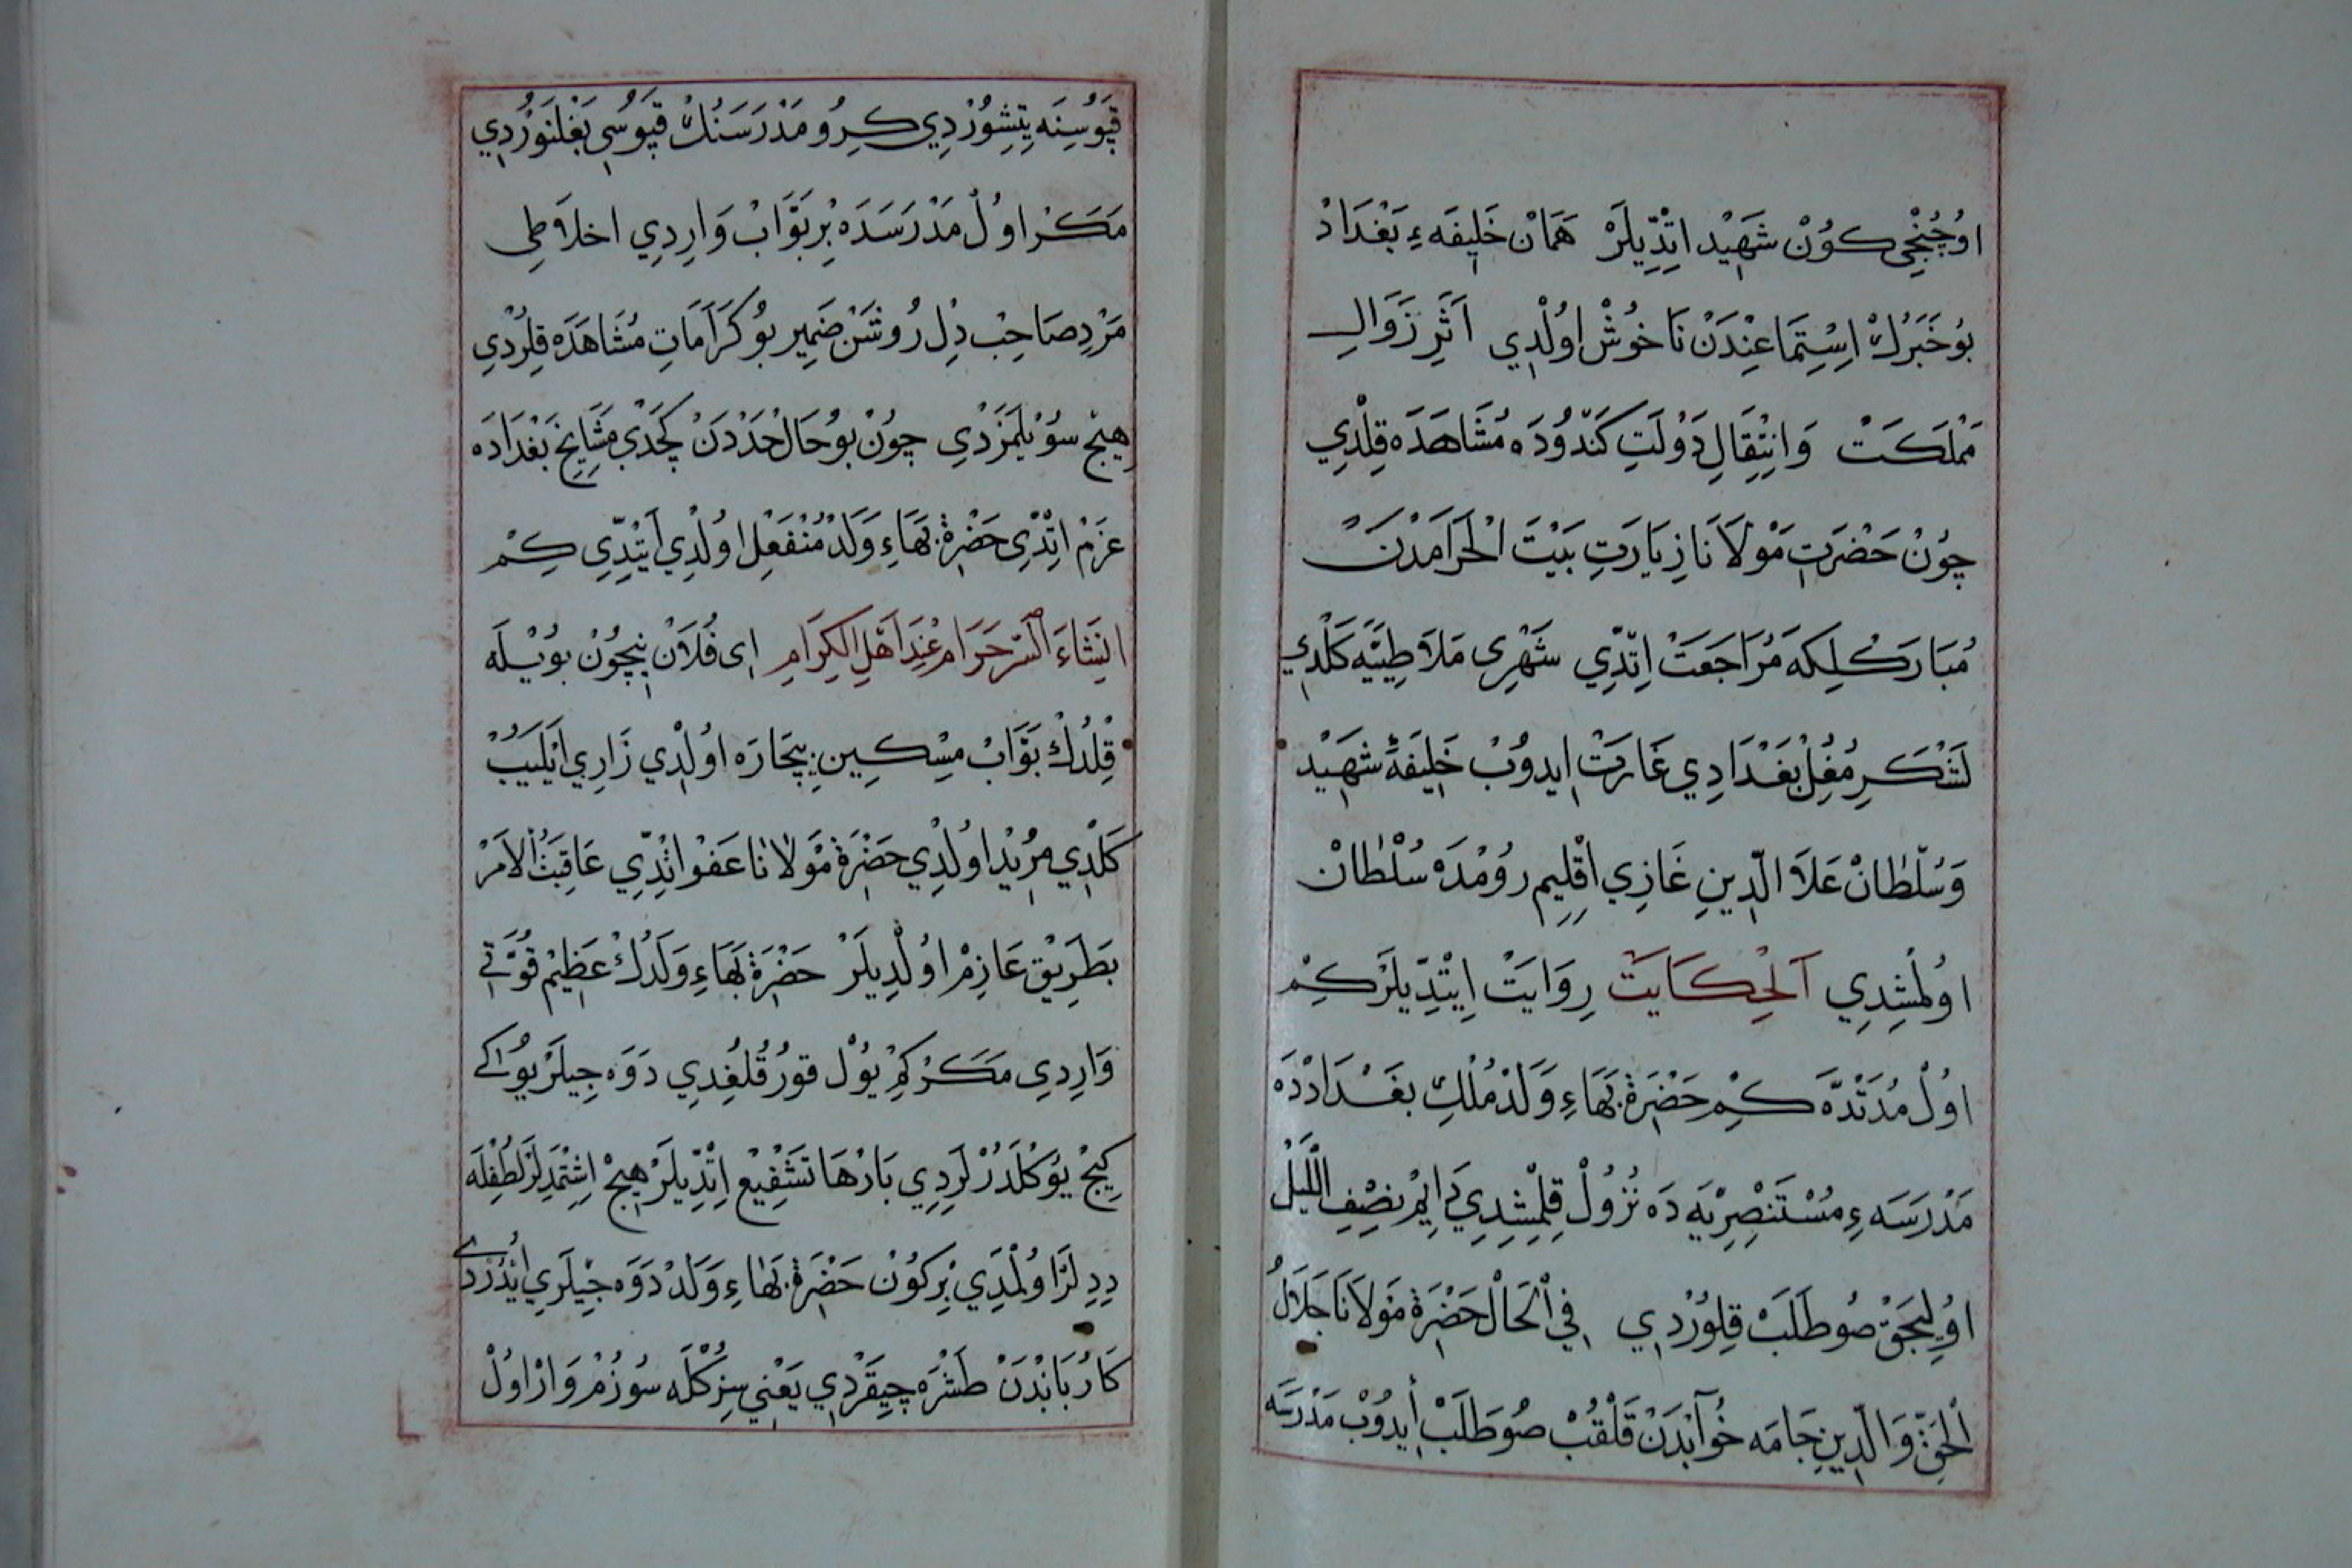 اوُچُنْجِى كوُنْ شَهِيْد اتِدّيِلَرْ هَمَانْ خَلِيفَهءِ بَغْدَادْ
بوُ خَبَرُكْ اِسْتِمَاعِنْدَنْ نَاخُوشْ اوُلْدِي اَثَرِ زَوَالِ
مَمْلَكَتْ وَانِتْقَالِ دَوْلَتِ كَنْدُودَه مُشَاهَدَه قِلْدِي
چوُنْ حَضْرَتِ مَوْلاَنَا زِيَارَتِ بَيْتَ الْحَرَامَدْنَ
مُبَارَكْلِكَه مُرَاجَعَتْ اِتِدّي شَهْرِى مَلاَطِيَّيَه كَلْدِي
لَشْكَرِ مُغُلْ بَغْدَادِي غَارَتْ اِيدوُبْ خَلِيفَهٴ شَهِيْد
وَسُلْطَانْ عَلاَ الدّيِنِ غَازِي اقْلِيمِ روُمْدَه سُلْطَانْ
اوُلْمُشِدِي اَلْحِكَايَتْ رِوَايَتْ اِيتْدِيلَرْكِمْ
اوُلْ مُدَّتْدَه كِمْ حَضْرَةِ بَهَاءِ وَلَدْ مُلْكِ بَغْدَادْدَه
مَدْرَسَهءِ مُسْتَنْصِرِيَه دَه نُزُولْ قِلْمِشِدِي دَايِمْ نِصْفِ اللَّيْلْ
اوُلِيجَقْ صُو طَلَبْ قِلوُرْدِي فِي اْلحَالْ حَضْرَةِ مَوْلاَنَا جَلاَلُ
اْلحَقِّ وَالدّيِنِ جَامَه خُوآبْدَنْ قَلْقُبْ صُو طَلَبْ أيدوُبْ مَدْرَسَه
قَپوُسِنَه يِتِشوُرْدِي كِرُو مَدْرَسَنُكْ قَپوُسِى بَغْلَنوُرْدِي
مَكَرْ اوُلْ مَدْرَسَدَه بِرْ بَوَّابْ وَارِدِي اخلاَطِى
مَرْدِ صَاحِبْ دِلْ رُوشَنْ ضَمِير بوُ كَرَامَاتِ مُشَاهَدَه قِلُرْدِي
هِيْچ سوُيْلَمَزْدِي چوُنْ بوُ حَالْ حَدْدَنْ كَچْدِي مَشَايِخِ بَغْدَادَه
عَزَمْ اتِدّي حَضْرَةِ بَهَاءِ وَلَدْ مُنْفَعِلْ اوُلْدِي اَيتِدّي كِمْ
اِنِشَاءَ السّرْ حَرَامْ عِنْدَ اَهْلِ الكِرَامِ اى فُلاَنْ نِيچوُنْ بوُيْلَه
قِلْدُكْ بَوَّابْ مِسْكِينِ بِيچَارَه اوُلْدِي زَارِي اَيْلَيوُبْ
كَلْدِي مُرِيْد اوُلْدِي حَضْرَةِ مَوْلاَنَا عَفوْ اتِدّي عَاقِبَتُ اْلاَمْر
بَطَرِيْق عَازِمْ اوُلْدِيلَرْ حَضْرَةِ بَهَاءِ وَلَدُكْ عَظِيمْ قُوَّتِي
وَارِدِي مَكَرْ كِمْ يوُلْ قوُرْقُلُغِدِي دَوَه جِيلَرْ يوُكى
كِيجْ يوُكْلَدُرْلَرِدِي بَارْهَا تَشْفِيعْ اِتِدّيلَرْ هِيچْ اِشِتْمَدِلَرْ لُطْفِلَه
دِدِلَرْ اوُلْمَدِي بِرْكوُنْ حَضْرَةِ بَهَاءِ وَلَدْ دَوَه جِيلَرِي
كَارُبَانْدَنْ طَشْرَه چِيقَرْدِي يَعْنِي سِزُكْلَه سوُزُمْ وَارْ اوُلْ